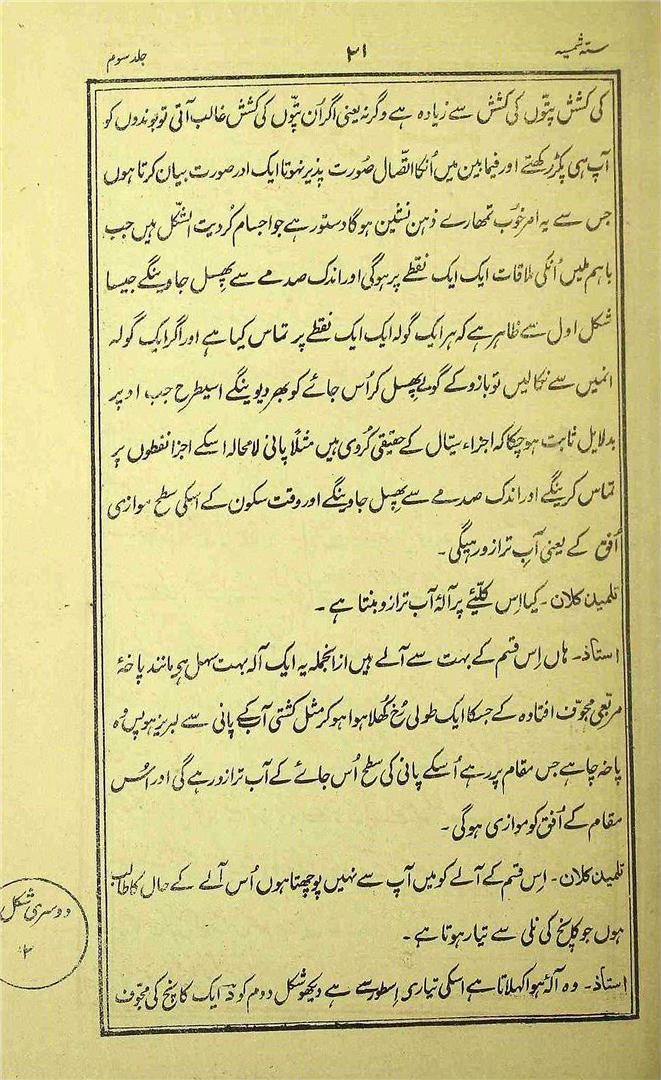 ستہ شمسیہ ۲۱ جلد سوم
کی کشش پتّوں کی کشش سے زیادہ ہے وگرنہ یعنی اگر اُن پتّوں کی کشش غالب آتی تو بوندوں کو
آپ ہی پکڑ رکھتے اور فیما بین میں اُنکا اتّصال صورت پذیر نہوتا ایک اور صورت بیان کرتا ہوں
جس سے یہ امر خوب تمھارے ذہن نشین ہوگا دستور ہے جو اجسام کُردیت الشّکل ہیں جب
باہم ملیں اُنکی ملاقات ایک ایک نقطے پر ہوگی اور اندک صدمے سے پھسل جاوینگے جیسا
شکل اول سے ظاہر ہے کہ ہر ایک گولہ ایک ایک نقطے پر تماس کیا ہے اور اگر ایک گولہ
انمیں سے نکالیں تو بازو کے گولے پھسل کر اُس جائے کو بھر دیوینگے اسیطرح جب اوپر
بدلایل ثابت ہو چکا کہ اجزاء سیّال کے حقیقی کُروی ہیں مثلاً پانی لامحالہ اسکے اجزا نقطوں پر
تماس کرینگے اور اندک صدمے سے پھسل جاوینگے اور وقت سکون کے اُسکی سطح موازی
اُفق کے یعنی آبِ ترازو رہیگی۔
تلمیذ کلان۔ کیا اِس کلّیئے پر آلۂ آب ترازو بنتا ہے۔
استاذ۔ ہاں اِس قسم کے بہت سے آلے ہیں ازانجملہ یہ ایک آلہ بہت سہل ہے مانند پاخۂ
مربّعی مجوّف افتادہ کے جسکا ایک طولی رُخ کُھلا ہوا ہو کر مثل کشتی آب کے پانی سے لبریز ہو پس وُہ
پاخہ چاہے جس مقام پر رہے اُسکے پانی کی سطح اُس جائے کے آب ترازو رہے گی اور اُس
مقام کے اُفق کو موازی ہوگی۔
تلمیذ کلان۔ اِس قسم کے آلے کو میں آپ سے نہیں پوچھتا ہوں اُس آلے کے حال کا طالب
ہوں جو کانچ کی نلی سے تیار ہوتا ہے۔
دوسری شکل
۲
استاذ۔ وہ آلۂ ہوا کہلاتا ہے اسکی تیاری اِسطور سے ہے دیکھو شکل دوم کو کہ ایک کانچ کی مجوّف